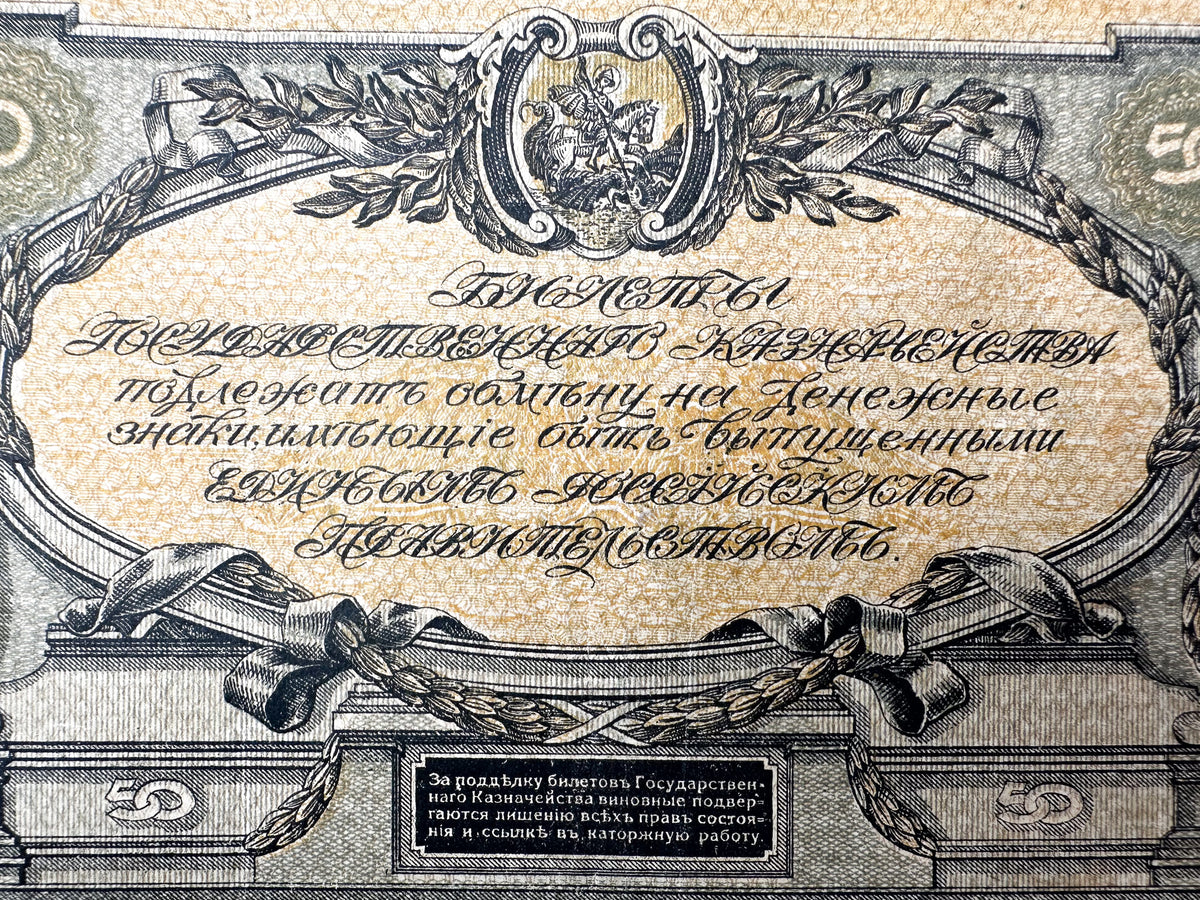 50
БИЛЕТЫ
ГОСУДАРСТВЕННАГО КАЗНАЧЕЙСТВА
подлежатъ обмѣну на денежные
знаки, имѣющіе быть выпущенными
ЕДИНЫМЪ РОССІЙСКИМЪ
ПРАВИТЕЛЬСТВОМЪ.
50
50
За поддѣлку билетовъ Государствен-
наго Казначейства виновные подвер-
гаются лишенію всѣхъ правъ состоя-
нія и ссылкѣ въ каторжную работу.